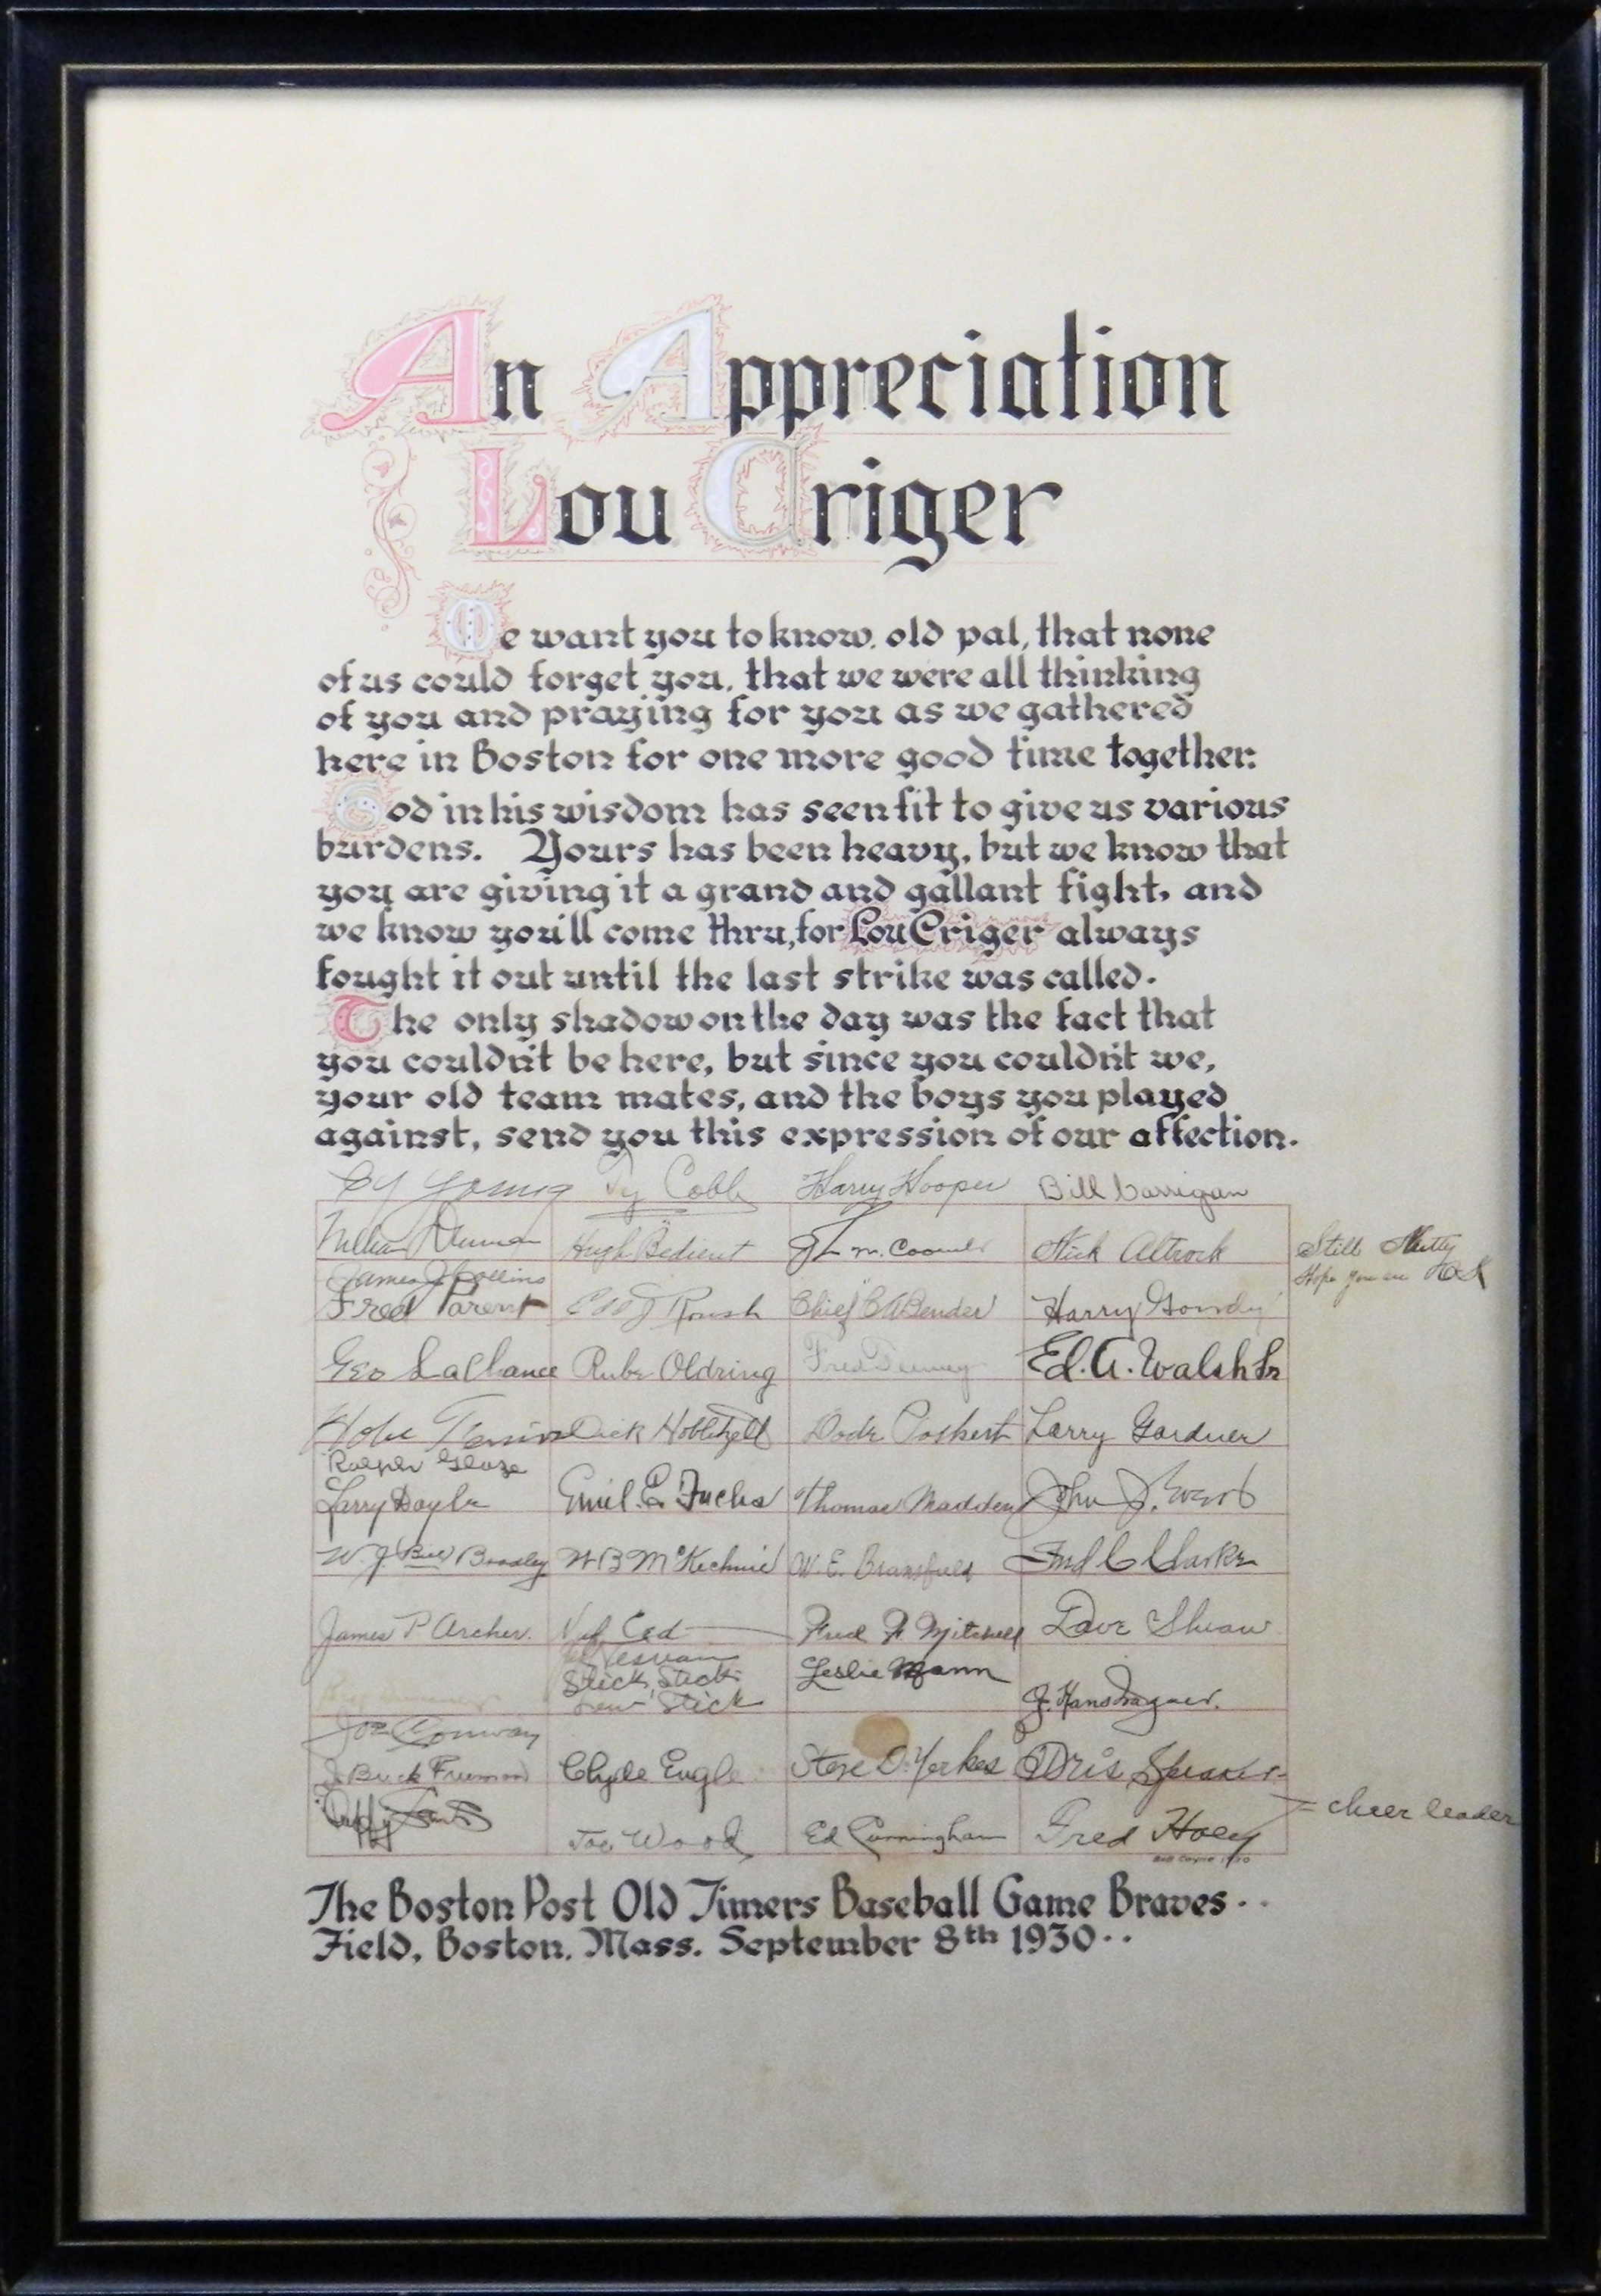 An Appreciation
Lou Criger
We want you to know, old pal, that none
of us could forget you, that we were all thinking
of you and praying for you as we gathered
here in Boston for one more good time together.
God in his wisdom has seen fit to give us various
burdens. Yours has been heavy, but we know that
you are giving it a grand and gallant fight, and
we know you'll come thru, for Lou Criger always
fought it out until the last strike was called.
The only shadow on the day was the fact that
you couldn't be here, but since you couldn't we,
your old team mates, and the boys you played
against, send you this expression of our affection.
Cy Young Ty Cobb Harry Hooper Bill Carrigan
Hugh Bedient Nick Altrock Still Nutty
James J Collins Hope you are OK
Fred Parent Edd J Roush Chief CA Bender Harry Gowdy
Geo LaChance Rube Oldring Fred Tenney Ed. A. Walsh Sr
Hobe Ferris Dick Hoblitzell Dode Paskert Larry Gardner
Ralph Glaze
Larry Doyle Emil E. Fuchs Thomas Madden John J. Evers
W. J. "Bill" Bradley W B McKechnie W. E. Bransfield Fred C Clarke
James P. Archer. Fred F. Mitchell Dave Shean
Leslie Mann
J. Hans Wagner.
Joe Conway
J Buck Freeman Clyde Engle Steve D. Yerkes Tris Speaker
Duffy Lewis = cheer leader
Joe Wood Ed Cunningham Fred Hoey
The Boston Post Old Timers Baseball Game Braves
Field, Boston, Mass. September 8th 1930